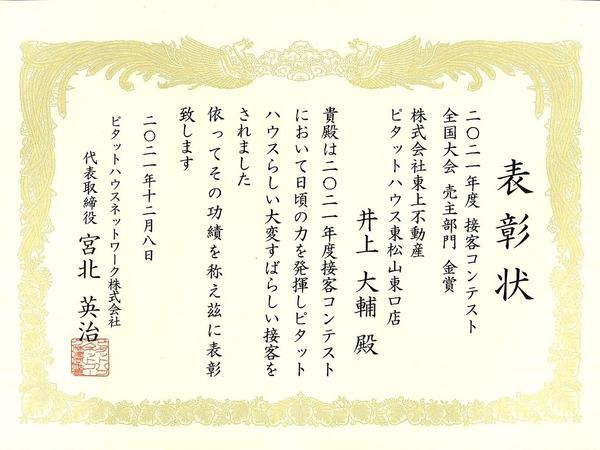 表彰状
二〇二一年度 接客コンテスト
全国大会 売主部門 金賞
株式会社東上不動産
ピタットハウス東松山東口店
井上 大輔 殿
貴殿は二〇二一年度接客コンテスト
において日頃の力を発揮しピタット
ハウスらしい大変すばらしい接客を
されました
依ってその功績を称え茲に表彰
致します
二〇二一年十二月八日
ピタットハウスネットワーク株式会社
代表取締役 宮北 英治